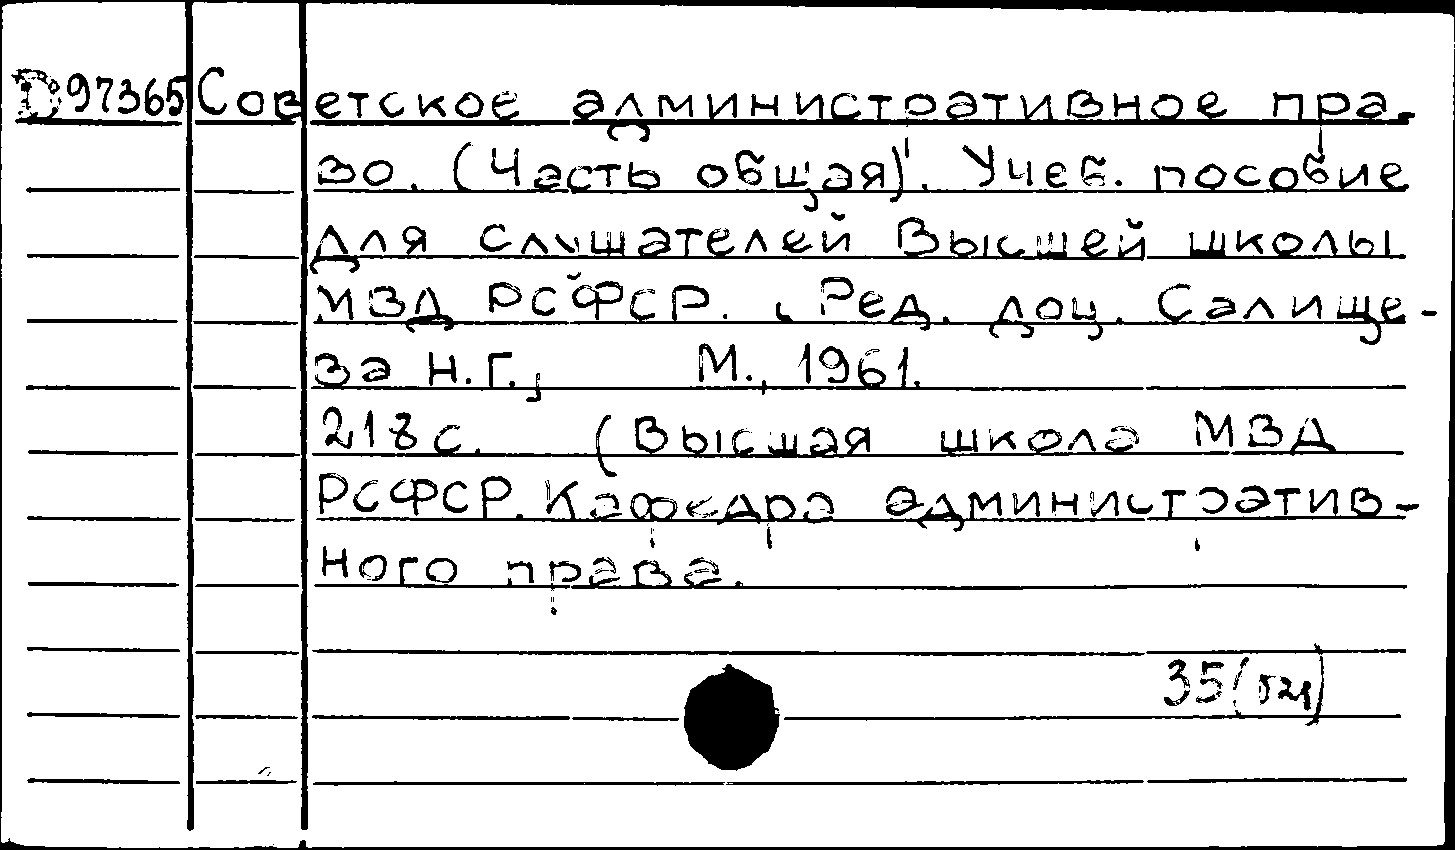 D97365 Советское административное пра-
во. (Часть общая). Учеб. пособие
для слушателей Высшей школы
МВД РСФСР. Ред. доц. Салище-
ва Н.Г., М., 1961.
218 с. (Высшая школа МВД
РСФСР. Кафедра административ-
ного права.
35(